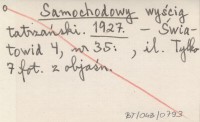 Samochodowy wyścig
tatrzański. 1927. – Świa-
towid 4, nr 35: , il. Tylko
7 fot. z objaśn.
BT/048/0793